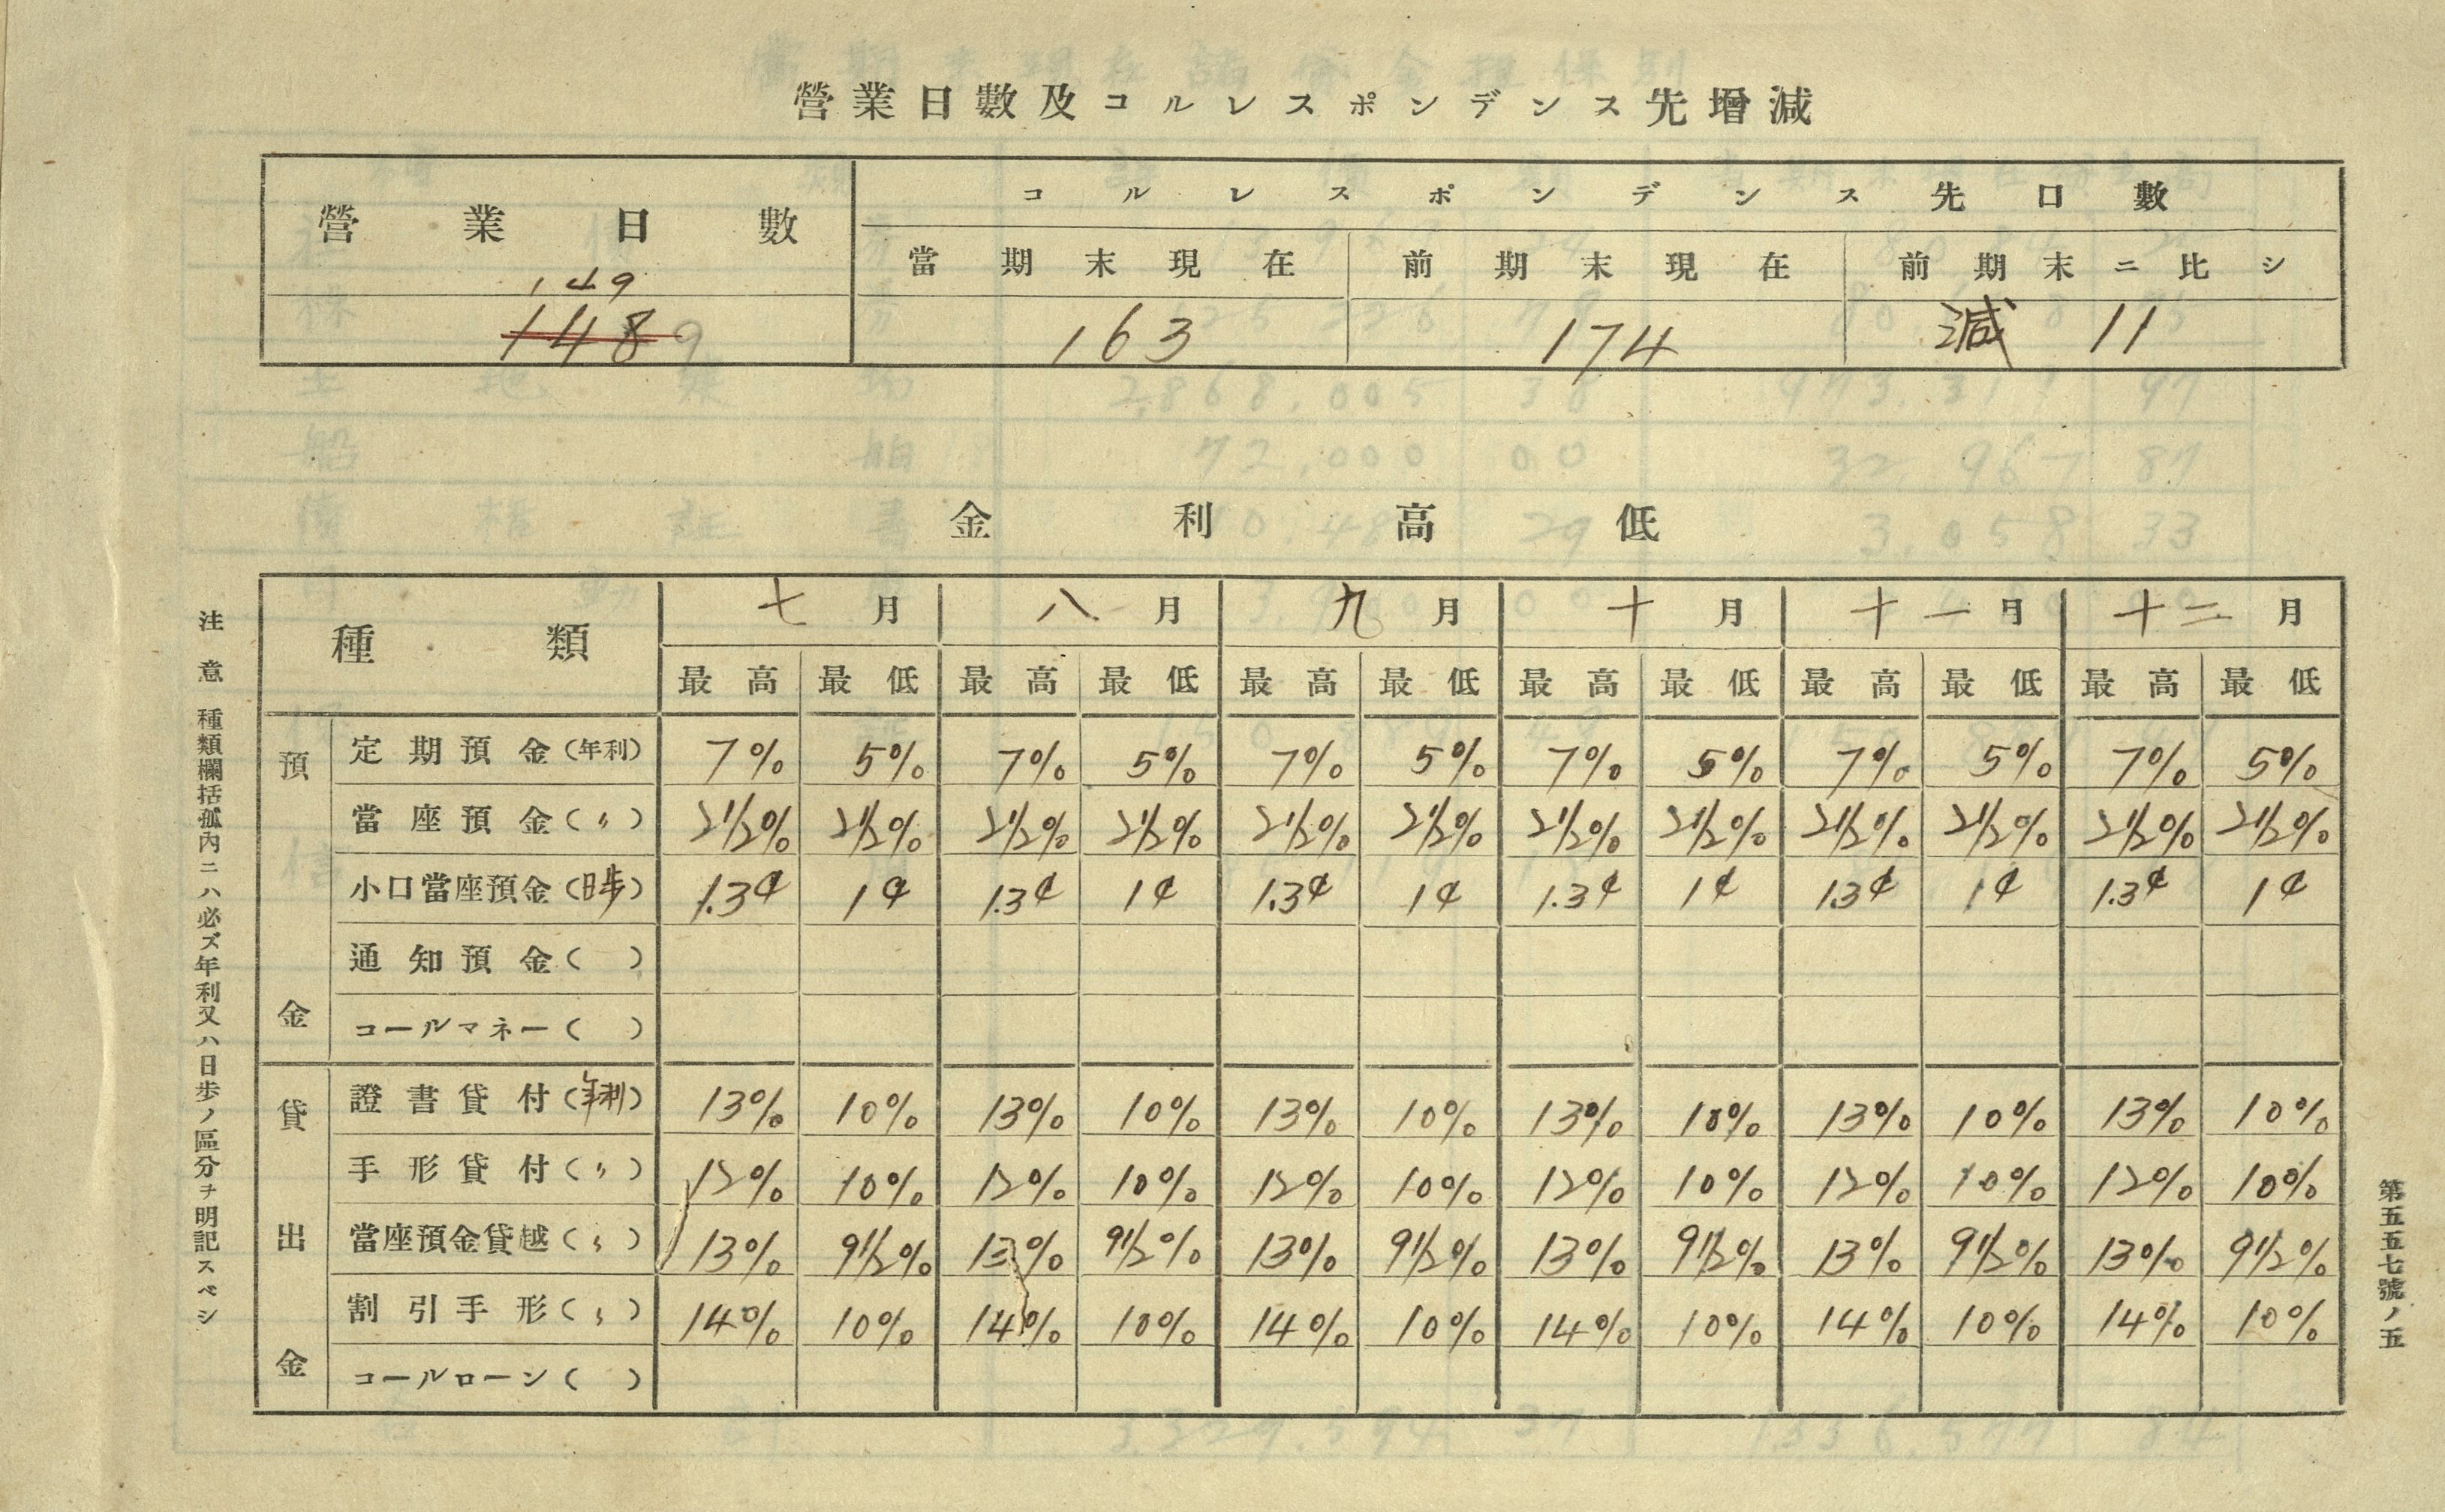 營業日數及コルレスポンデンス先增減
營業日數 コルレスポンデンス先口數
當期末現在 前期末現在 前期末ニ比シ
149
1489 163 174 減 11
金利高低
種類 七月 八月 九月 十月 十一月 十二月
最高 最低 最高 最低 最高 最低 最高 最低 最高 最低 最高 最低
預金
定期預金(年利) 7% 5% 7% 5% 7% 5% 7% 5% 7% 5% 7% 5%
當座預金(〃) 2 1/2% 2 1/2% 2 1/2% 2 1/2% 2 1/2% 2 1/2% 2 1/2% 2 1/2% 2 1/2% 2 1/2% 2 1/2% 2 1/2%
小口當座預金(日步) 1.3¢ 1¢ 1.3¢ 1¢ 1.3¢ 1¢ 1.3¢ 1¢ 1.3¢ 1¢ 1.3¢ 1¢
通知預金( )
コールマネー( )
貸出金
證書貸付(年利) 13% 10% 13% 10% 13% 10% 13% 10% 13% 10% 13% 10%
手形貸付(〃) 12% 10% 12% 10% 12% 10% 12% 10% 12% 10% 12% 10%
當座預金貸越(〃) 13% 9 1/2% 13% 9 1/2% 13% 9 1/2% 13% 9 1/2% 13% 9 1/2% 13% 9 1/2%
割引手形(〃) 14% 10% 14% 10% 14% 10% 14% 10% 14% 10% 14% 10%
コールローン( )
注意 種類欄括孤內ニハ必ズ年利又ハ日步ノ區分ヲ明記スベシ
第五五七號ノ五